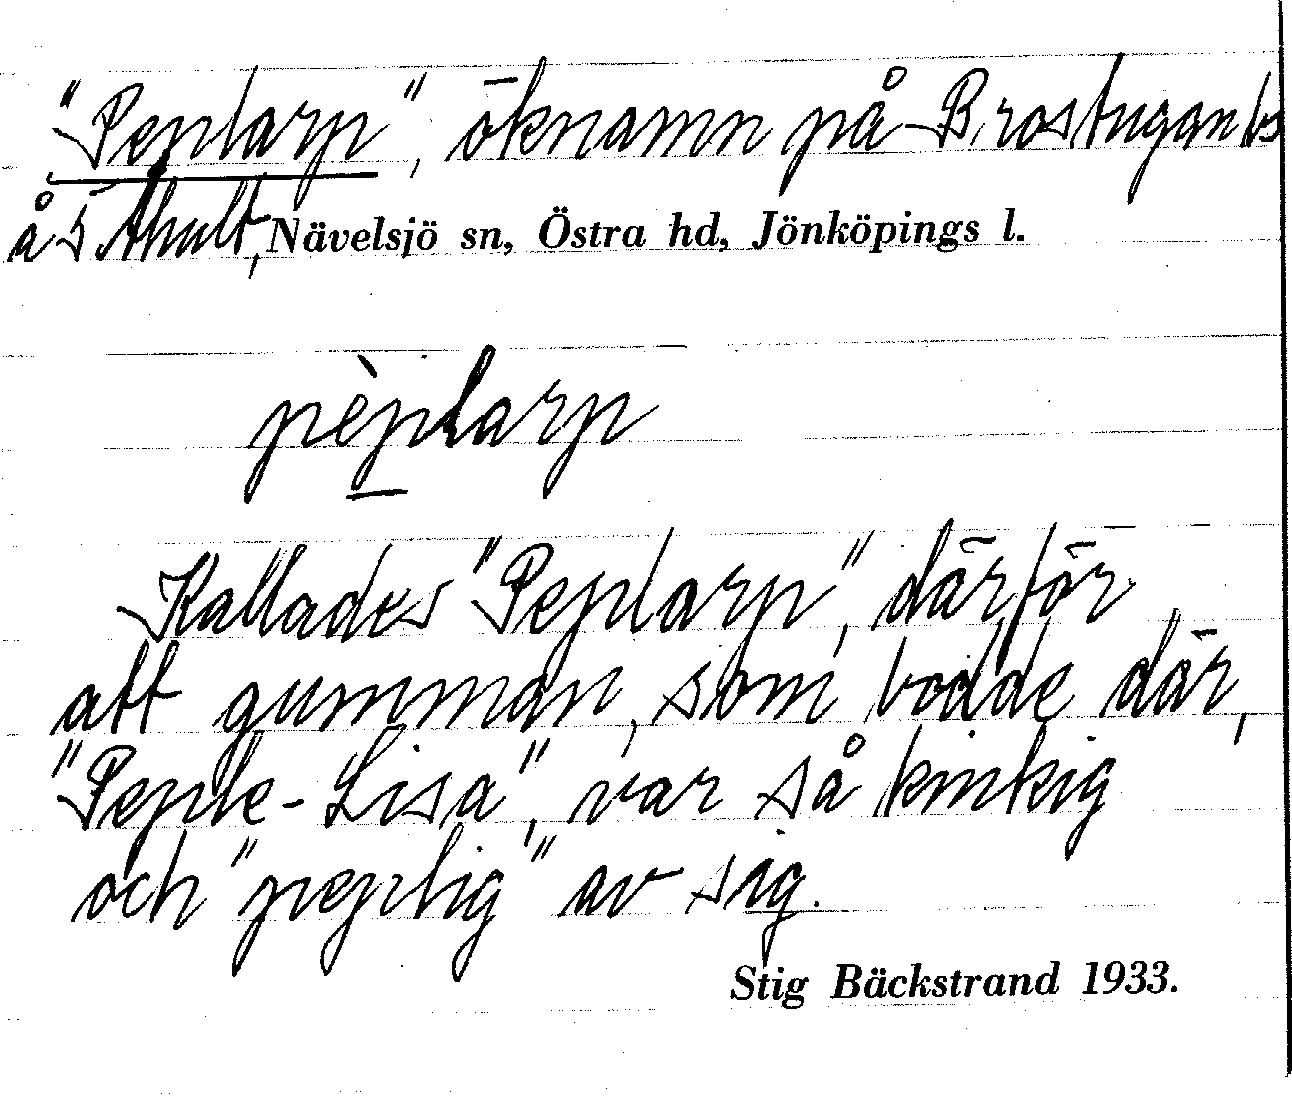 "Peplarp", öknamn på Brostugan ts
å s Ahult, Nävelsjö sn, Östra hd, Jönköpings l.
pèplarp
Kallades "Peplarp", därför
att gumman, som bodde där,
"Peple-Lisa", var så kinkig
och "peplig" av sig.
Stig Bäckstrand 1933.